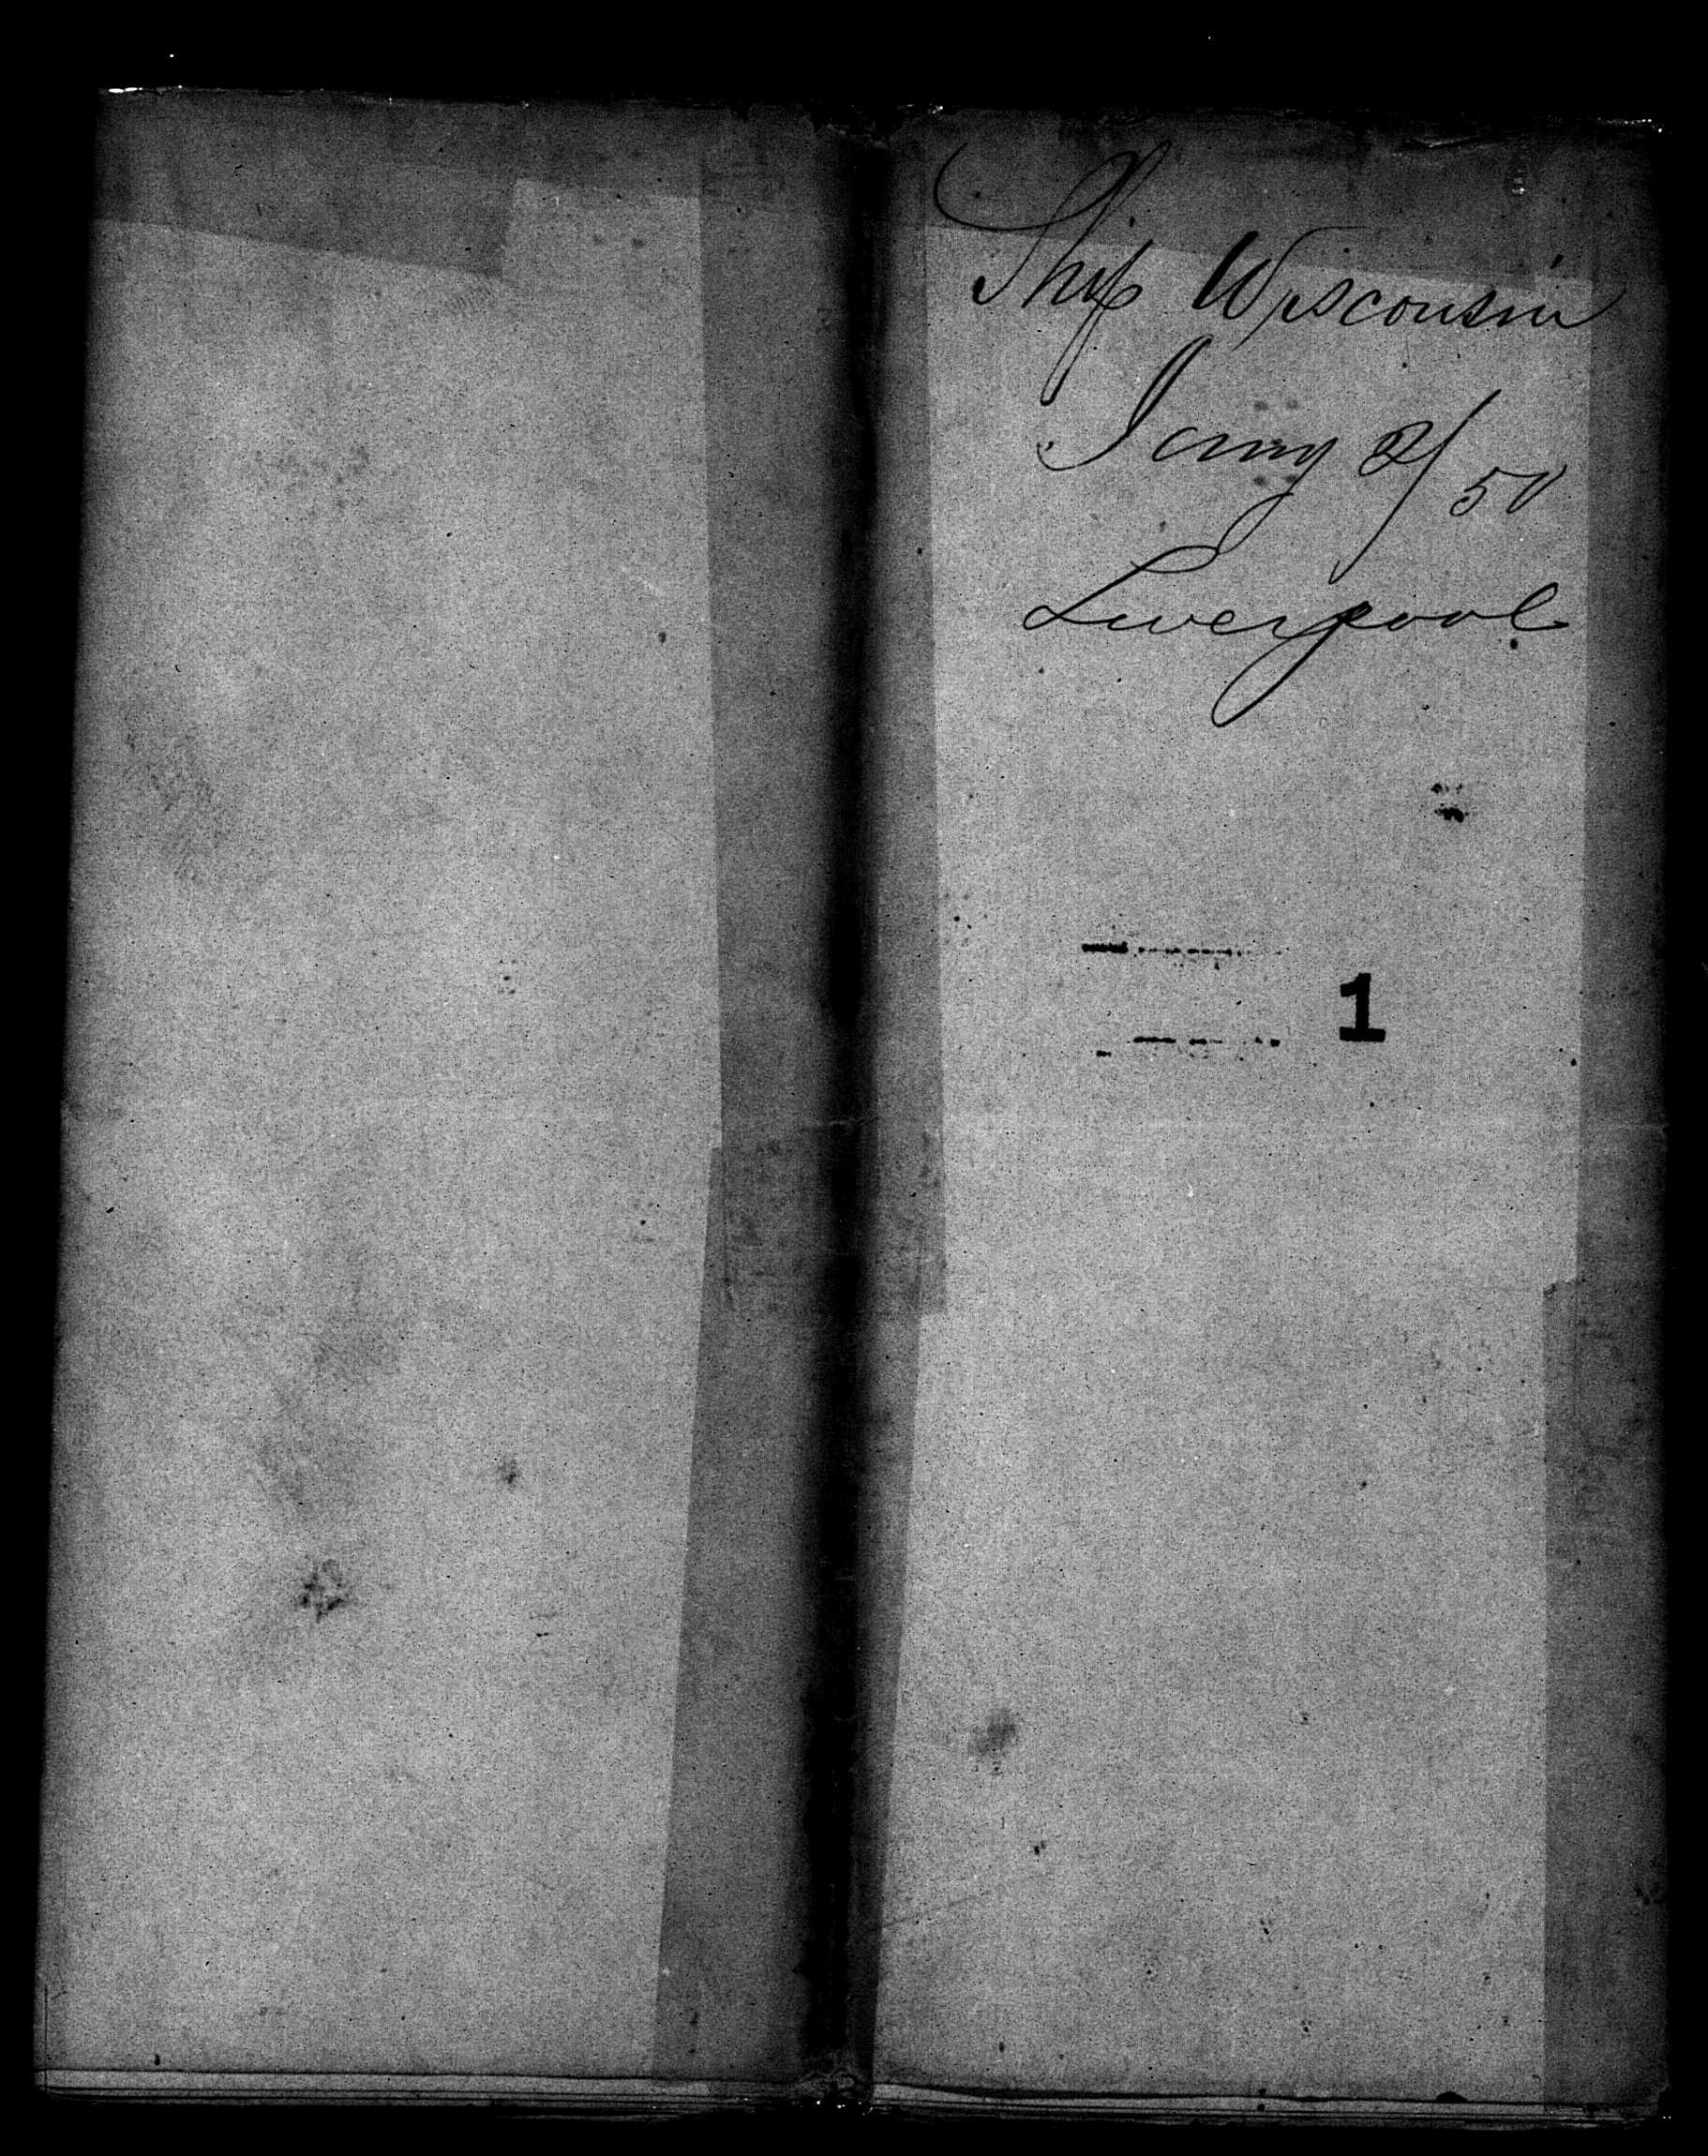 Ship Wisconsin
Jany 2/50
Liverpool
1